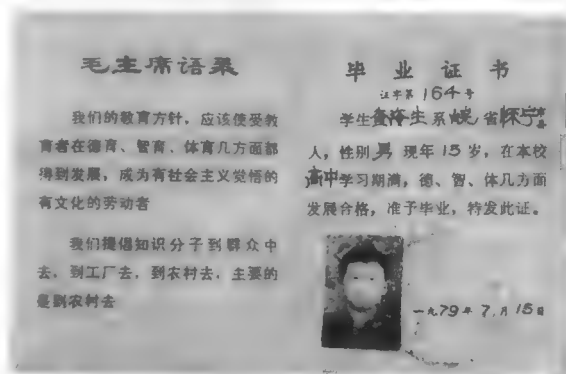 毛主席语录
我们的教育方针，应该使受教
育者在德育、智育、体育几方面都
得到发展，成为有社会主义觉悟的
有文化的劳动者
我们提倡知识分子到群众中
去，到工厂去，到农村去，主要的
是到农村去
毕业证书
证字第164号
学生海生系皖省怀宁县
人，性别男现年15岁，在本校
高中学习期满，德、智、体几方面
发展合格，准予毕业，特发此证。
一九79年7月15日